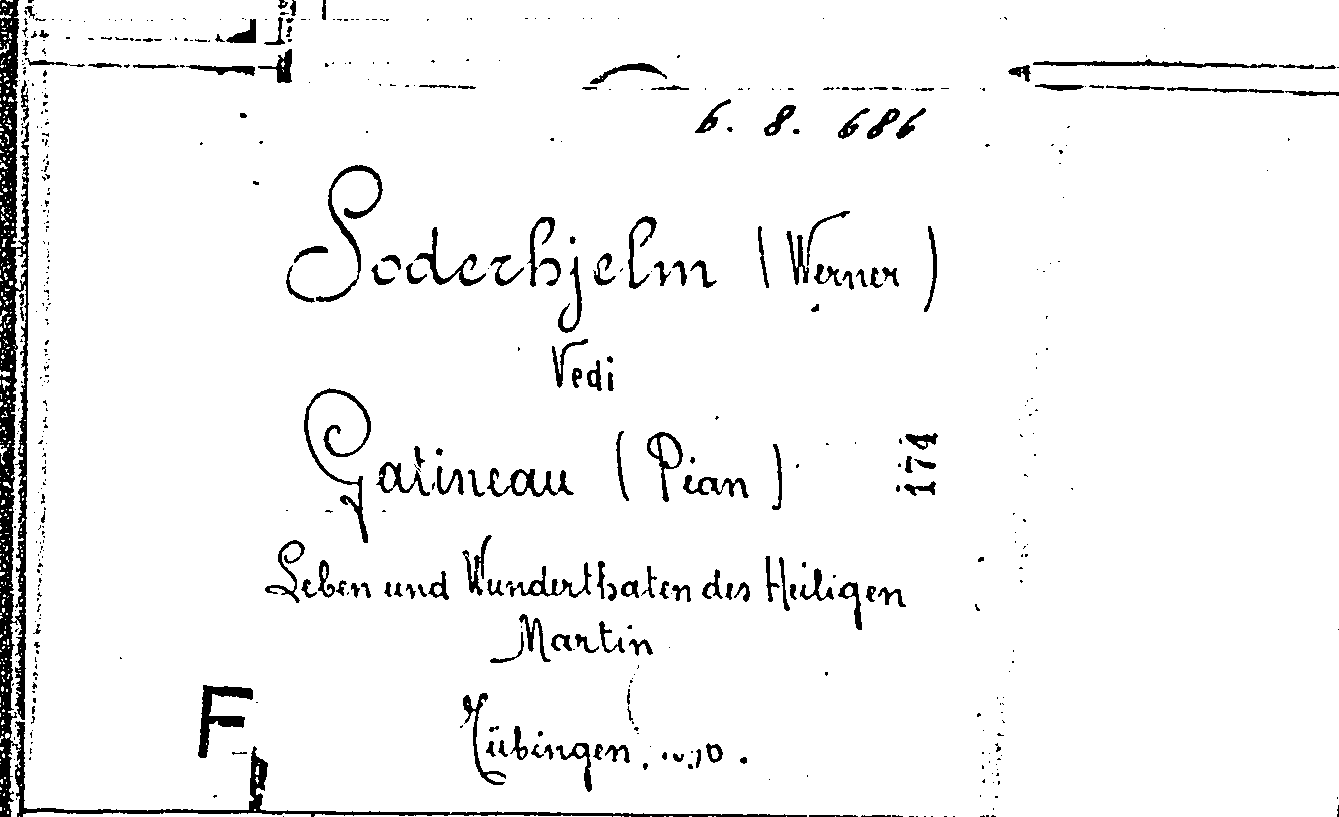 6. 8. 686
Soderhjelm (Werner)
Vedi
Gatineau (Péan)
174
Leben und Wunderthaten des Heiligen
Martin
F
Tübingen.